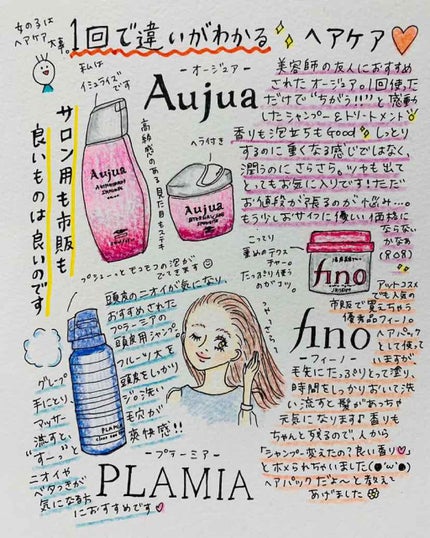 女の子は
ヘアケア
大事。
1回で違いがわかる
ヘアケア
私は
イミュライズ
です
-オージュア-
Aujua
美容師の友人におすすめ
されたオージュア。1回使った
だけで"ちがう!!"と感動
したシャンプー&トリートメント
香りも泡立ちもGood しっとり
するのに重くなる感じではなく、
潤うのにさらさら。ツヤも出て
とってもお気に入りです!ただ
お値段が張るのが悩み…。
もう少しおサイフに優しい価格に
ならない
かなぁ
(8o8)
サロン用も市販も
良いものは良いのです
高級感のある見た目もステキ
ヘラ付き
Aujua
Aujua
プシューっと
こっくり
重めのテクス
チャー。
たっぷり使う
のがコツ。
fino
アットコスメ
でも人気の
市販で買えちゃう
優秀品フィーノ。
fino
-フィーノ-
ヘアパック
として使って
いますが
毛先にたっぷりとって塗り、
時間をしっかりおいて洗
い流すと髪があっちゃ
元気になります♪香りも
ちゃんと残るので、人から
「シャンプー変えたの?良い香り♡」
とホメられちゃいました(●'ω'●)
ヘアパックだよ~と教えて
あげました
頭皮のニオイが気になり、
おすすめされた
プラーミアの
頭皮用シャンプー。
フルーツ大を
手にとり
頭皮をしっかり
マッサージ。洗い
流すと、毛穴が
"すーっ"と爽快感!!
ニオイや
ベタつきが
気になる方
におすすめです♡
つやっ
さら
PLAMIA
-プラーミア-
PLAMIA